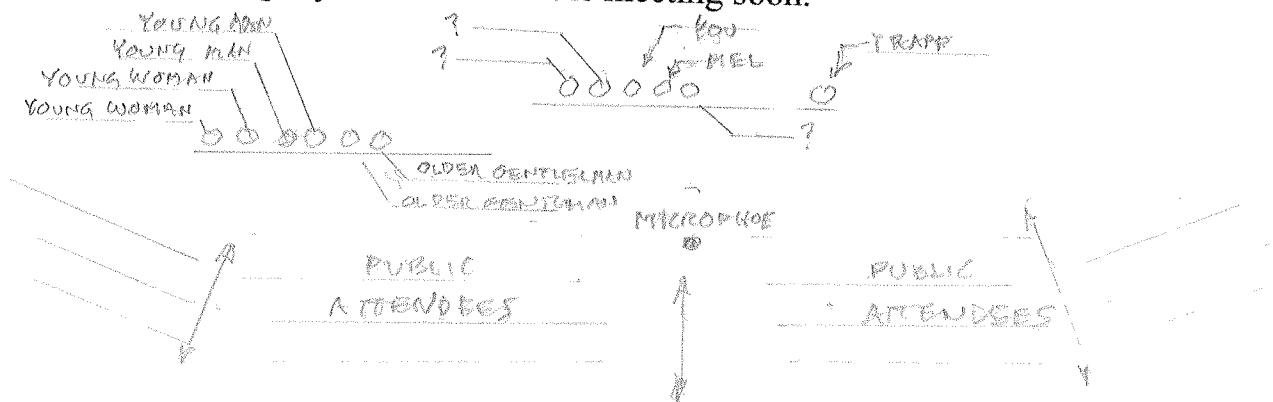 meeting soon.
YOUNG MAN
YOUNG MAN
YOUNG WOMAN
YOUNG WOMAN
?
?
YOU
MEL
TRAPP
?
OLDER GENTLEMAN
OLDER GENTLEMAN
MICROPHOE
PUBLIC
ATTENDEES
PUBLIC
ATTENDEES